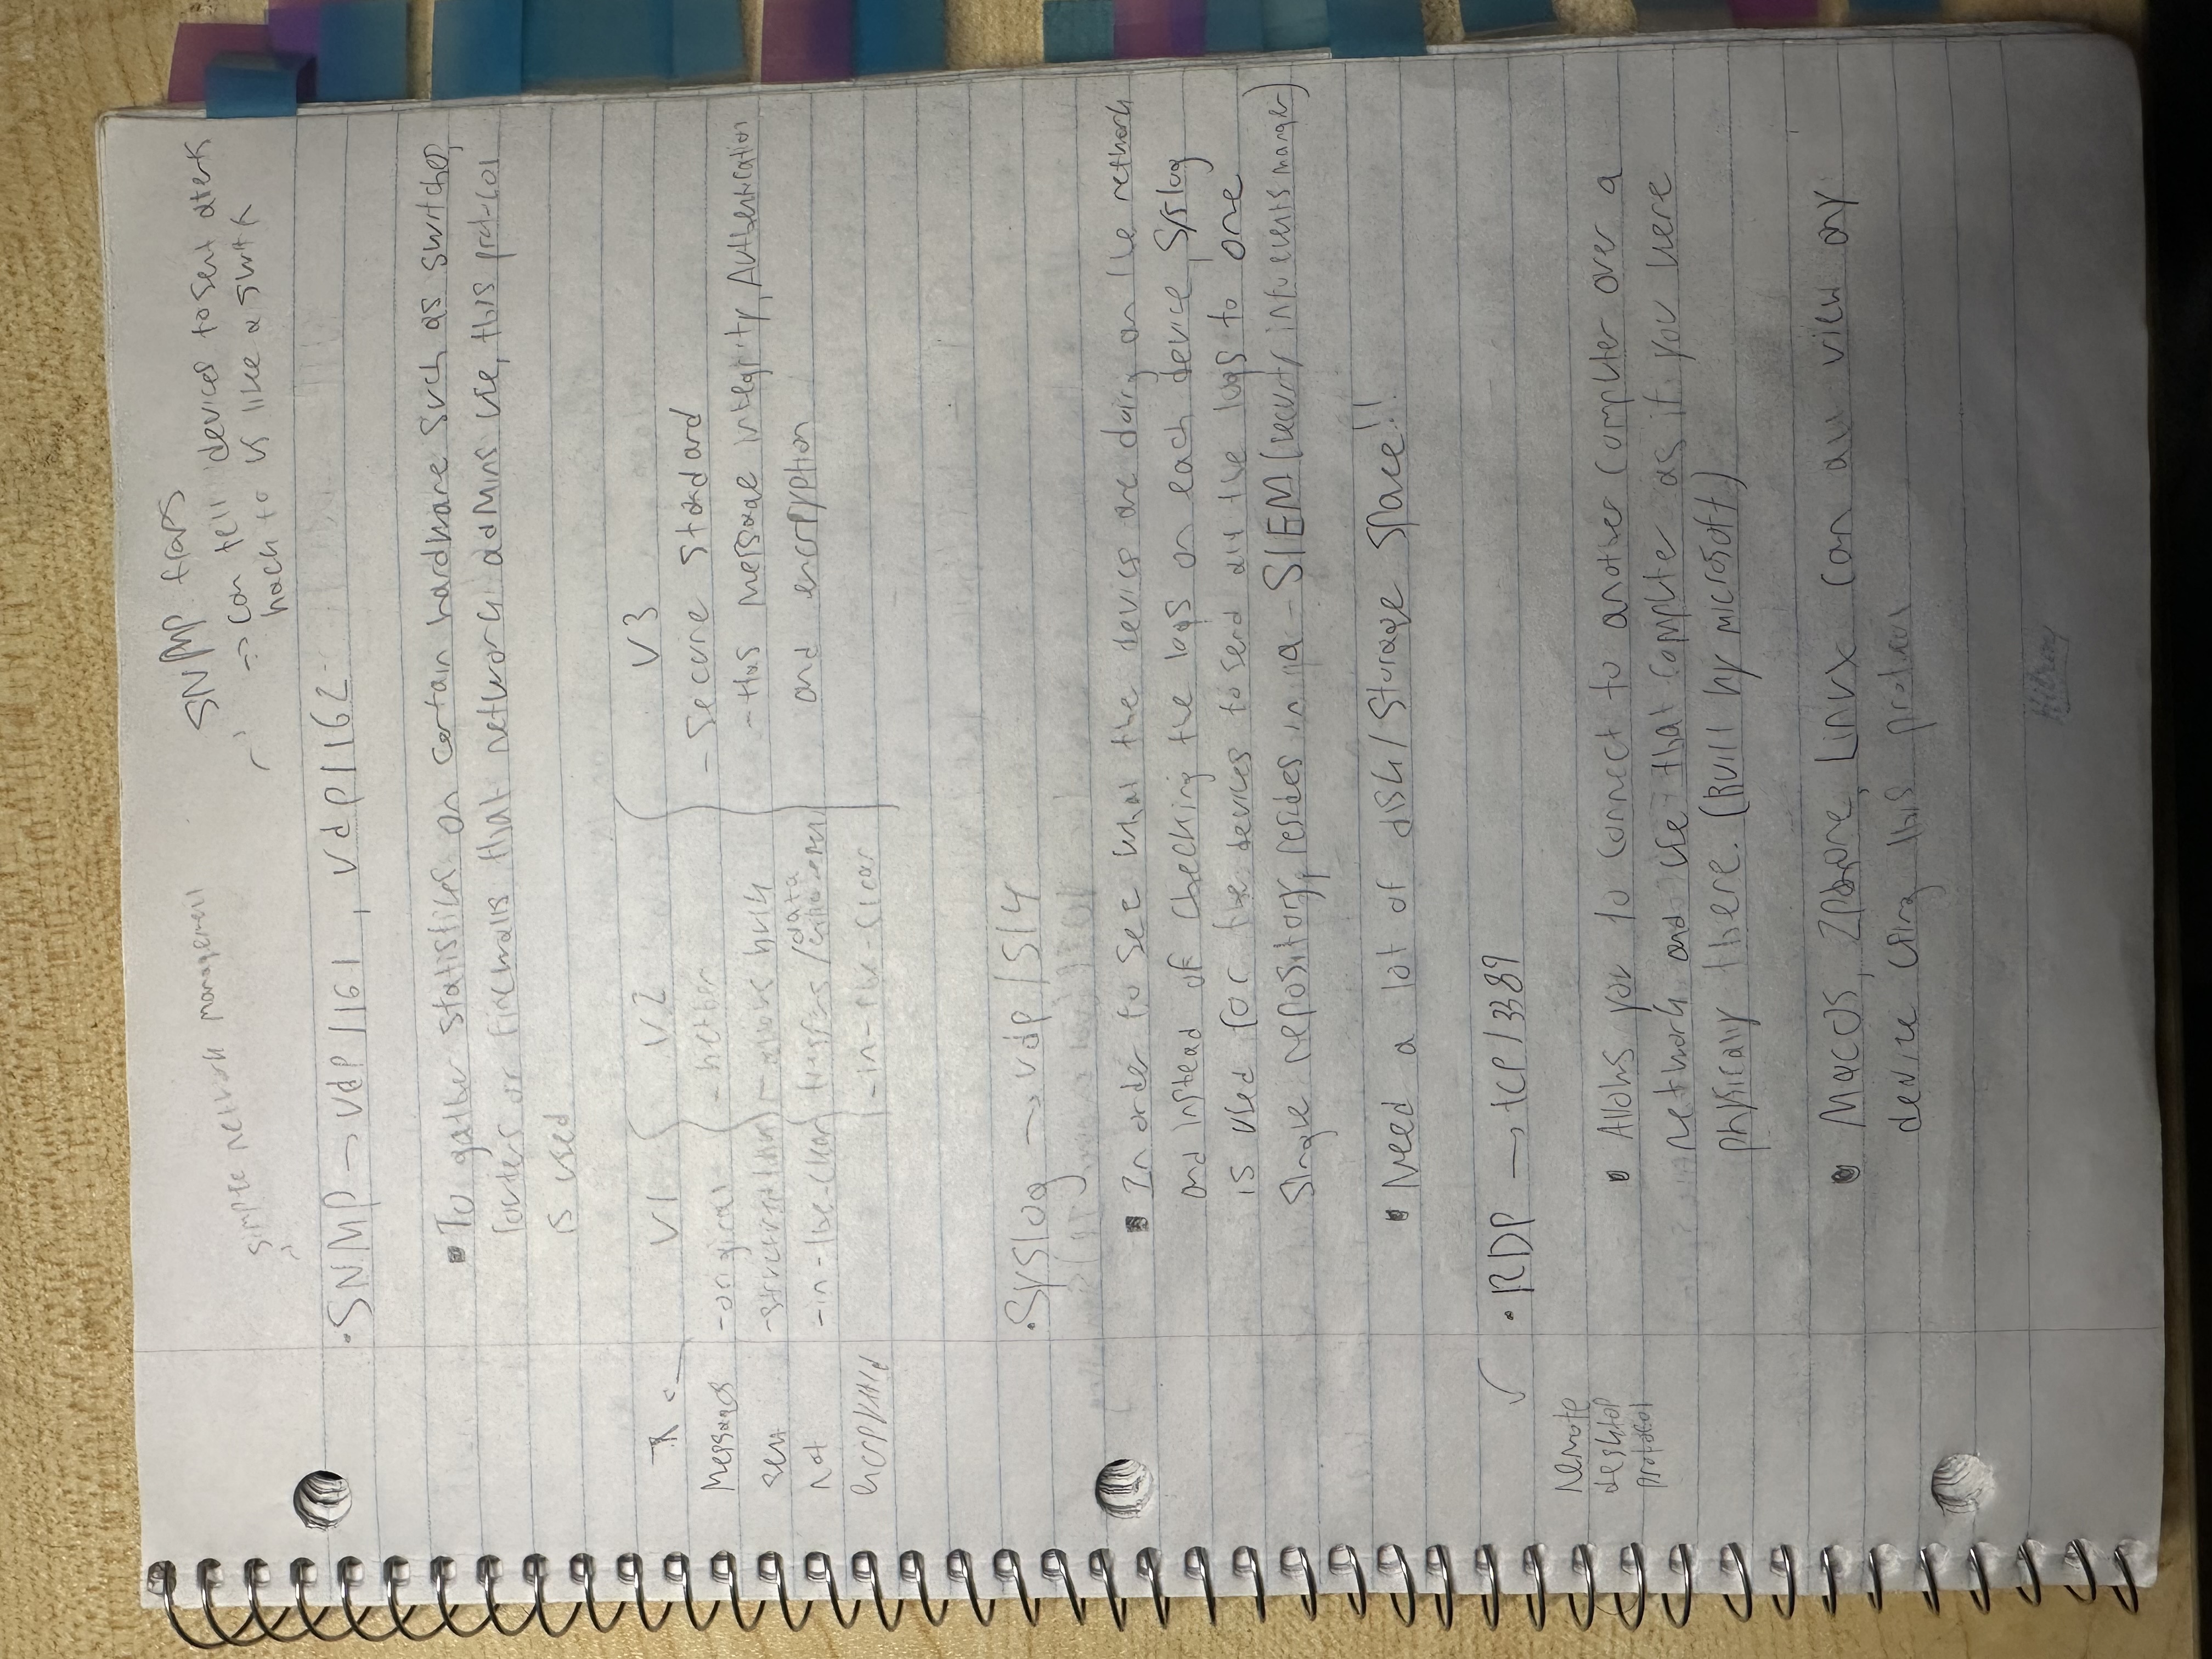 simple network management
SNMP traps
-> can tell devices to sent alerts
back to us like a switch
• SNMP → udp/161, udp/162
• To gather statistics on certain hardware such as switches,
routers or firewalls that network admins use, this protocol
is used
V1 V2 V3
Messages
sent
not
encrypted
- original
- structured
- in-the-clear
- better
- allows bulk
transfers / data
- in-the-clear
- Secure Standard
- Has message integrity, Authentication
and encryption
• Syslog → udp/514
• In order to see what the devices are doing on the network
and instead of checking the logs on each device, Syslog
is used for the devices to send all the logs to one
single repository, resides in a - SIEM (security info events manger)
• Need a lot of disk/storage space!!
• RDP → tcp/3389
remote
desktop
protocol
• Allows you to connect to another computer over a
network and use that computer as if you were
physically there. (Built by microsoft)
• MacOS, Iphone, Linux can all view any
device using this protocol
Hilroy